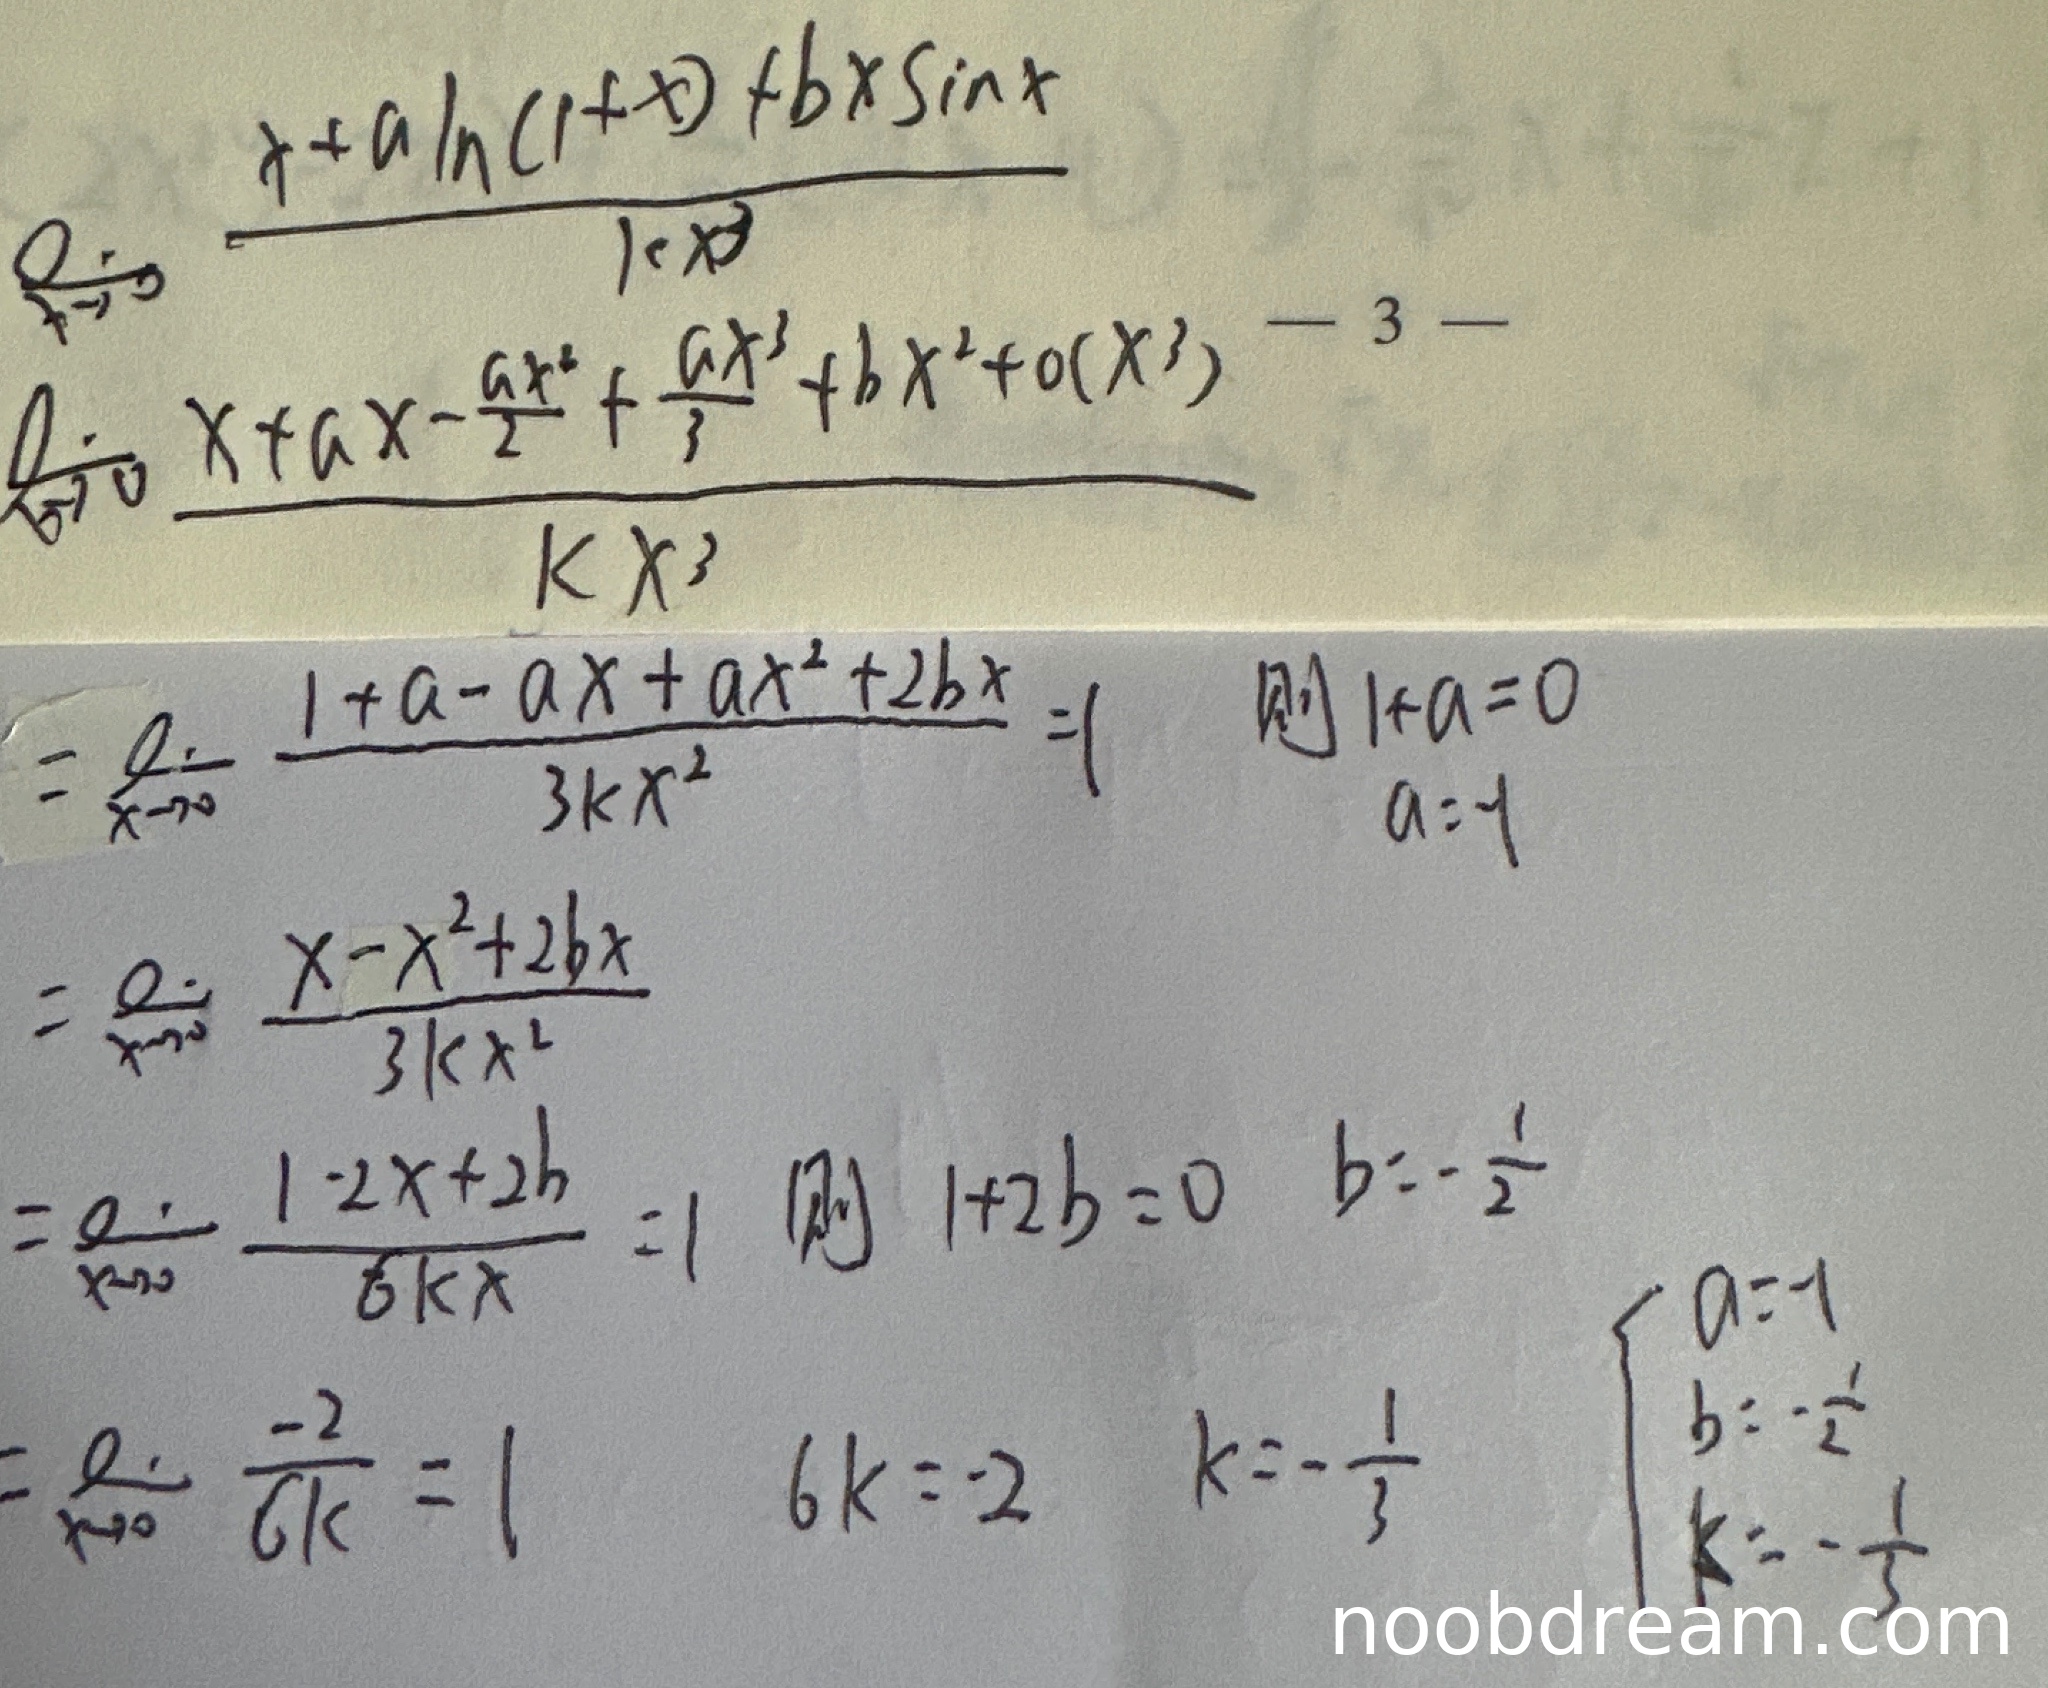 lim x→0 (x+a ln(1+x)+bx sinx)/(kx³)
— 3 —
lim x→0 (x+ax-ax²/2+ax³/3+bx²+o(x³))/(kx³)
= lim x→0 (1+a-ax+ax²+2bx)/(3kx²) =1 则 1+a=0
a=-1
= lim x→0 (x-x²+2bx)/(3kx²)
= lim x→0 (1-2x+2b)/(6kx) =1 则 1+2b=0 b=-1/2
= lim x→0 -2/(6k) = 1 6k=-2 k=-1/3
{ a=-1
b=-1/2
k=-1/3
noobdream.com